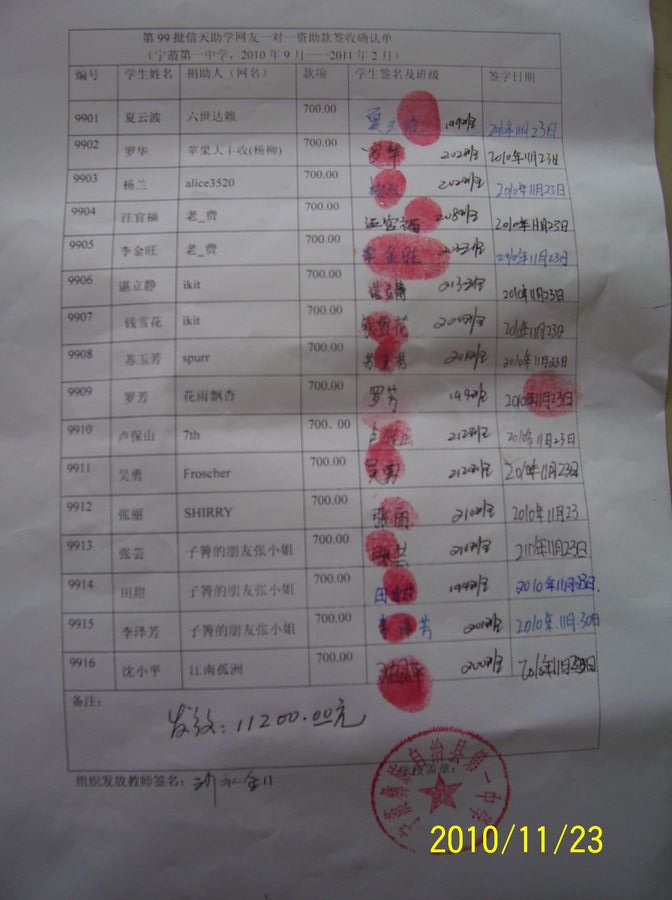 第99批信天助学网友一对一资助款签收确认单
（宁蒗第一中学，2010年9月——2011年2月）
编号 学生姓名 捐助人（网名） 款项 学生签名及班级 签字日期
9901 夏云波 六世达赖 700.00 夏云波 199班 2010年11月23日
9902 罗华 苹果人丰收(杨柳) 700.00 罗华 202班 2010年11月23日
9903 杨兰 alice3520 700.00 202班 2010年11月23日
9904 汪官福 老_费 700.00 汪官福 208班 2010年11月23日
9905 李金旺 老_费 700.00 李金旺 203班 2010年11月23日
9906 谌立静 ikit 700.00 谌立静 213班 2010年11月23日
9907 钱雪花 ikit 700.00 钱雪花 200班 2010年11月23日
9908 苏玉芳 spurr 700.00 苏玉芳 201班 2010年11月23日
9909 罗芳 花雨飘香 700.00 罗芳 199班 2010年11月23日
9910 卢保山 7th 700.00 212班 2010年11月23日
9911 吴勇 Froscher 700.00 吴勇 212班 2010年11月23日
9912 张丽 SHIRRY 700.00 张丽 210班 2010年11月23
9913 张芸 子箐的朋友张小姐 700.00 张芸 210班 11月23日
9914 田甜 子箐的朋友张小姐 700.00 田甜 199班 2010年11月23日.
9915 李泽芳 子箐的朋友张小姐 700.00 李泽芳 201班 2010年.11月.30日
9916 沈小平 江南孤洲 700.00 200班 2010年11月23日
备注：
发放：11200.00元
组织发放教师签名： 学校盖章：
宁蒗彝族自治县第一中学
2010/11/23